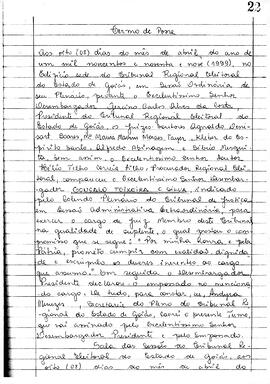 22
Termo de Posse
Aos oito (08) dias do mês de abril, do ano de
um mil novecentos e noventa e nove (1999), no
Edifício sede do Tribunal Regional Eleitoral
do Estado de Goiás, em Sessão Ordinária de
seu Plenário, perante o Excelentíssimo Senhor
Desembargador Carlos Alves da Costa
Presidente do Tribunal Regional Eleitoral do
Estado de Goiás, os juízes
Kleber do Es-
pírito Santo, Alfredo Abinagem e
bem assim, o Excelentíssimo Senhor Doutor
Hélio Telho Corrêa Filho, Procurador Regional
Eleitoral, compareceu o Excelentíssimo Senhor Desembar-
gador GONÇALO TEIXEIRA E SILVA, indicado
pelo Colendo Plenário do Tribunal de Justiça
em Sessão Administrativa Extraordinária, para
exercer o cargo de Membro deste Tribunal
na qualidade de suplente, o qual prestou o com-
promisso que se segue: "Por minha honra e pela
Pátria, prometo cumprir com exatidão, dignida-
de e escrúpulo os deveres inerentes ao cargo
que assumo." Em seguida, o Desembargador
Presidente declarou-o empossado no menciona-
do cargo. De tudo, para constar, eu,
Secretária do Pleno do Tribunal Re-
gional do Estado de Goiás, lavrei o presente Termo,
que vai assinado pelo Excelentíssimo Senhor
Desembargador Presidente e pelo Empossado.
Sala das Sessões do Tribunal Re-
gional Eleitoral do Estado de Goiás, aos
oito (08) dias do mês de abril do